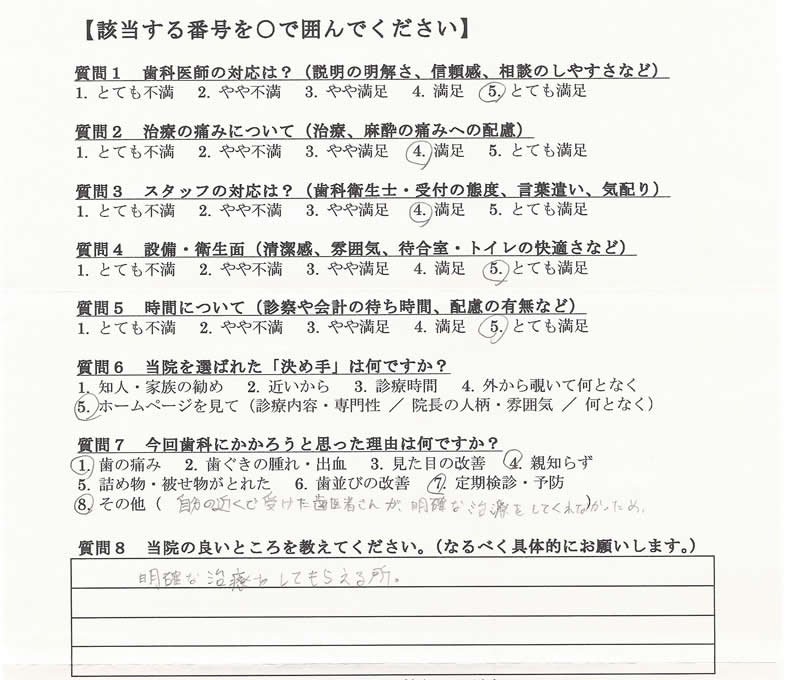 【該当する番号を○で囲んでください】
質問1 歯科医師の対応は？（説明の明解さ、信頼感、相談のしやすさなど）
1. とても不満 2. やや不満 3. やや満足 4. 満足 5. とても満足
質問2 治療の痛みについて（治療、麻酔の痛みへの配慮）
1. とても不満 2. やや不満 3. やや満足 4. 満足 5. とても満足
質問3 スタッフの対応は？（歯科衛生士・受付の態度、言葉遣い、気配り）
1. とても不満 2. やや不満 3. やや満足 4. 満足 5. とても満足
質問4 設備・衛生面（清潔感、雰囲気、待合室・トイレの快適さなど）
1. とても不満 2. やや不満 3. やや満足 4. 満足 5. とても満足
質問5 時間について（診察や会計の待ち時間、配慮の有無など）
1. とても不満 2. やや不満 3. やや満足 4. 満足 5. とても満足
質問6 当院を選ばれた「決め手」は何ですか？
1. 知人・家族の勧め 2. 近いから 3. 診療時間 4. 外から覗いて何となく
5. ホームページを見て（診療内容・専門性 ／ 院長の人柄・雰囲気 ／ 何となく）
質問7 今回歯科にかかろうと思った理由は何ですか？
1. 歯の痛み 2. 歯ぐきの腫れ・出血 3. 見た目の改善 4. 親知らず
5. 詰め物・被せ物がとれた 6. 歯並びの改善 7. 定期検診・予防
8. その他（ 自分の近くで受けた歯医者さんが、明確な治療をしてくれなかったため。
質問8 当院の良いところを教えてください。（なるべく具体的にお願いします。）
明確な治療をしてもらえる所。